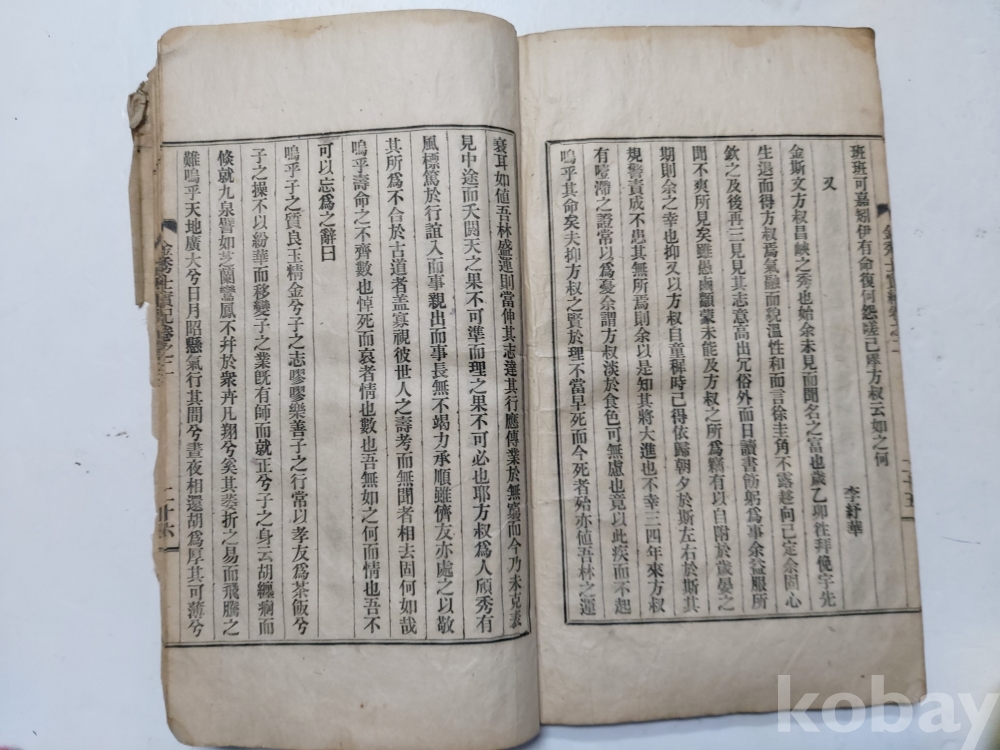 班班可嘉矧伊有命復何怨嗟已乎方叔云如之何
又
李紆華
金斯文方叔昌峽之秀也始余未見而聞名之富也歲乙卯往拜俛宇先
生退而得方叔焉氣融而貌溫性和而言徐圭角不露趍向已定余固心
欽之及後再三見見其志意高出冗俗外而日讀書飭躬爲事余益服所
聞不爽所見矣雖愚鹵顓蒙未能及方叔之所爲竊有以自附於歲晏之
期則余之幸也抑又以方叔自童穉時已得依歸朝夕於斯左右於斯其
規警責成不患其無所焉則余以是知其將大進也不幸三四年來方叔
有噎滯之證常以爲憂余謂方叔淡於食色可無慮也竟以此疾而不起
嗚乎其命矣夫抑方叔之賢於理不當早死而今死者殆亦値吾林之運
衰耳如値吾林盛運則當伸其志達其行應傳業於無窮而今乃未克表
見中途而夭閼天之果不可準而理之果不可必也耶方叔爲人頎秀有
風標篤於行誼入而事親出而事長無不竭力承順雖儕友亦處之以敬
其所爲不合於古道者盖寡視彼世人之壽考而無聞者相去固何如哉
嗚乎壽命之不齊數也悼死而哀者情也數也吾無如之何而情也吾不
可以忘爲之辭曰
嗚乎子之質良玉精金兮子之志嘐嘐樂善子之行常以孝友爲茶飯兮
子之操不以紛華而移變子之業旣有師而就正兮子之身云胡纏痾而
倏就九泉譬如芝蘭鸞鳳不幷於衆卉凡翔兮矣其萎折之易而飛騰之
難嗚乎天地廣大兮日月照懸氣行其間兮晝夜相還胡爲厚其可薄兮
二十六